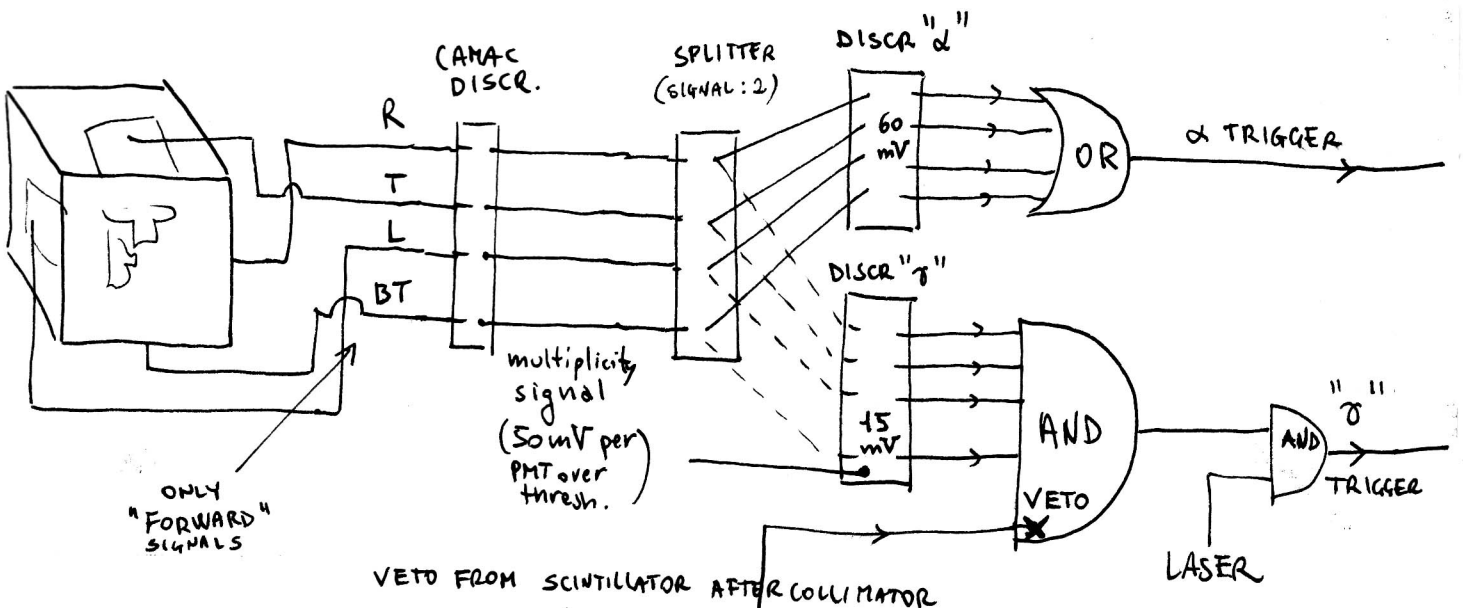 CAMAC
DISCR.
SPLITTER
(SIGNAL:2)
DISCR "α"
R
T
L
BT
60
mV
OR
α TRIGGER
DISCR "γ"
multiplicity
signal
(50mV per
PMT over
thresh.)
15
mV
AND
VETO
AND
"γ"
TRIGGER
LASER
ONLY
"FORWARD"
SIGNALS
VETO FROM SCINTILLATOR AFTER COLLIMATOR